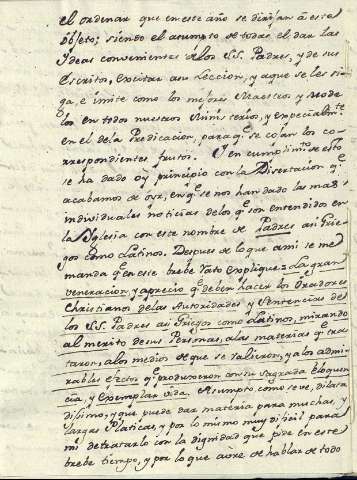 el ordenar que en este año se dirijan á este
objeto; siendo el asumpto de todas el dar las
Ydeas convenientes de los S.S. Padres, y de sus
Escritos, excitar a su Leccion, y a que se les si-
ga, é imite como los mejores Maestros y Mode
los en todos nuestros Ministerios, y expecialmte.
en el de la Predicacion, para qe. se cojan los co-
rrespondientes frutos. Y en cumplimto. de esto
se ha dado oy principio con la Disertacion qe.
acabamos de óyr, en qe. se nos han dado las mas
individuales noticias de los qe. son entendidos en
la Yglesia con este nombre de Padres asi Grie-
gos como Latinos. Despues de lo que a mi se me
manda qe. en este brebe rato explique: La gran
veneracion, y aprecio qe. deben hacer los Oradores
Christianos de las Autoridades y Sentencias de
los S.S. Padres asi Griegos como Latinos, mirando
al merito de sus Personas, a las materias qe. tra
taron, a los medios de que se valieron, y a los admi-
rables efectos qe. produxeron con su Sagrada Eloquen
cia, y Exemplar vida. Asumpto, como se ve, dilata
disimo, y que puede dar materia para muchas, y
largas Platicas, y por lo mismo muy dificil para
mi de tratarlo con la dignidad que pide en este
brebe tiempo, y por lo que avré de hablar de todo